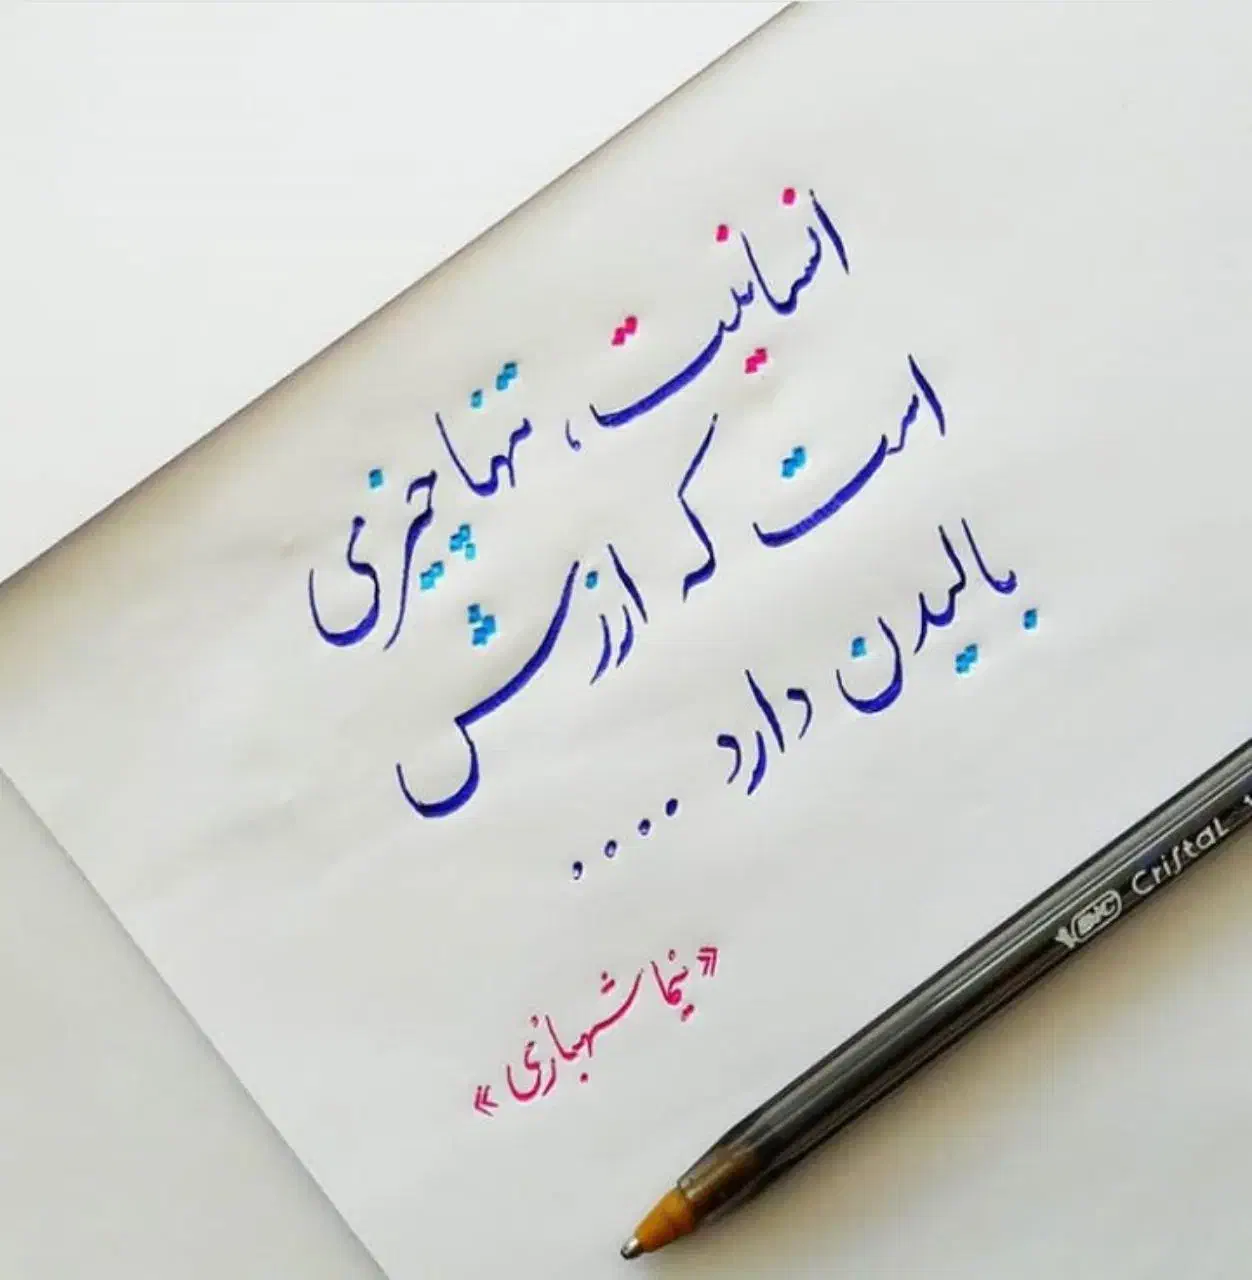 انسانیت، تنها چیزی
است که ارزش
بالیدن دارد ....
«نیما شهبازی»
BIC Cristal